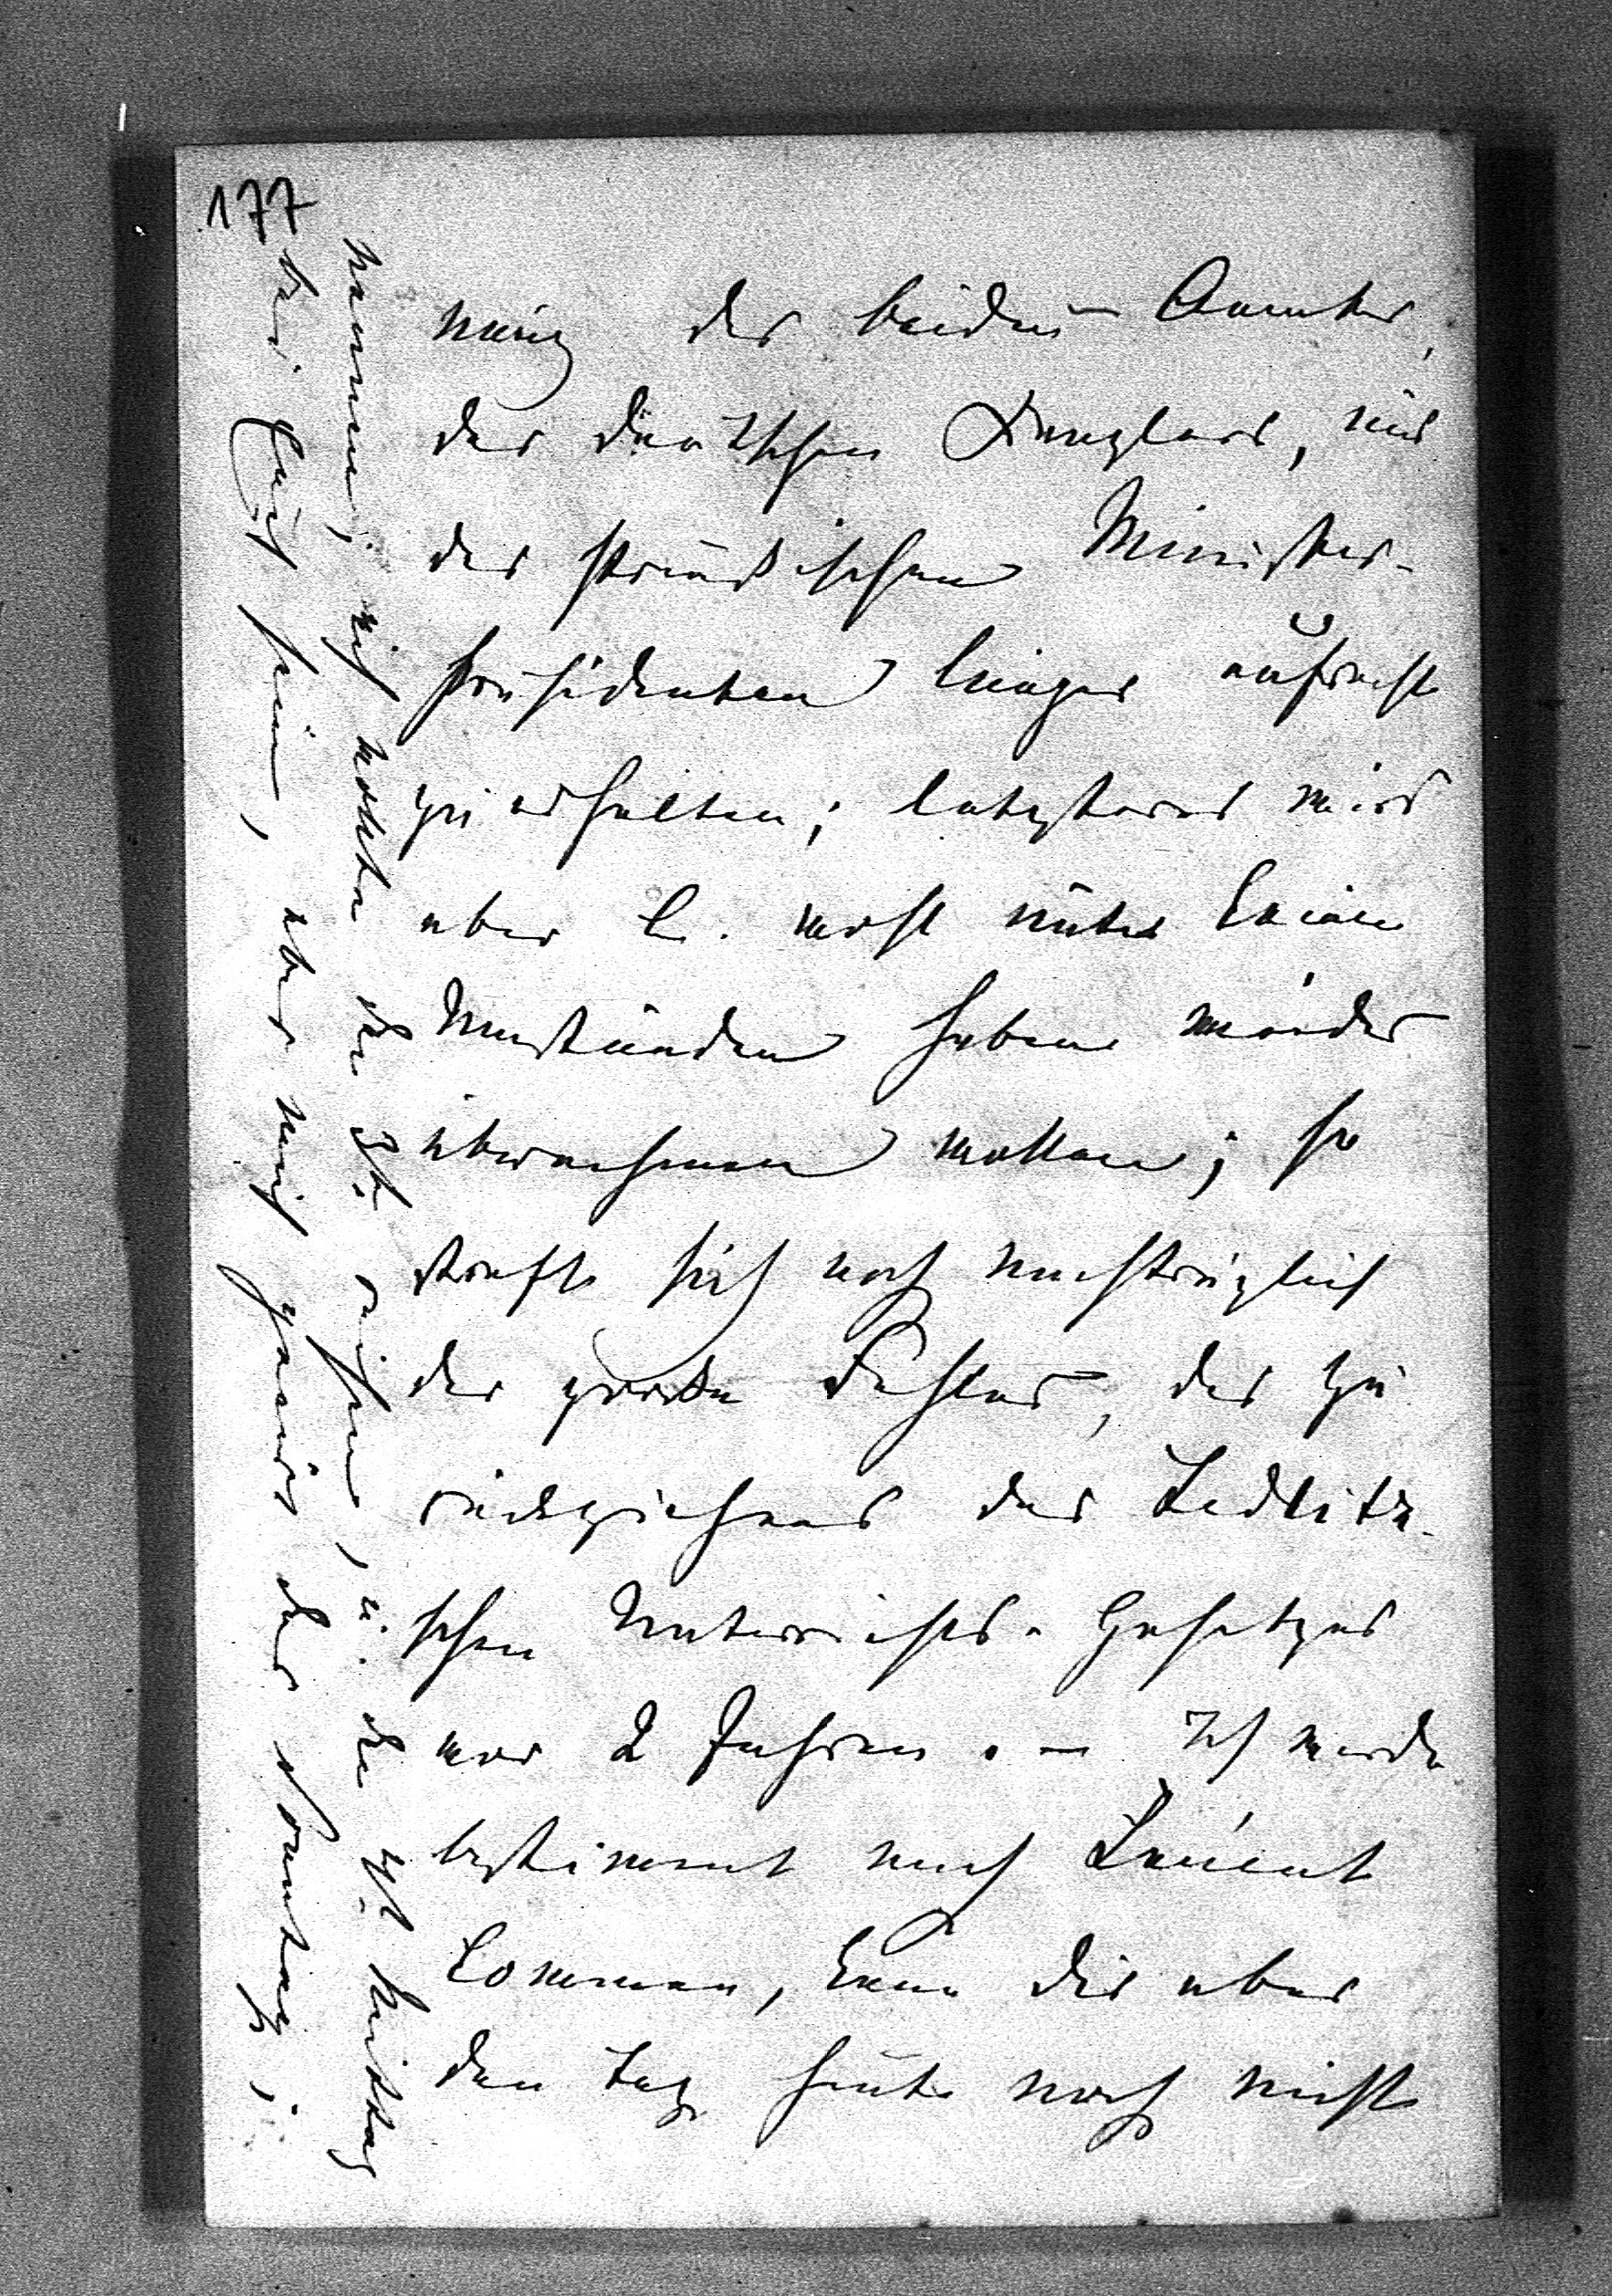 177
nung der beiden Aemter,
des deutschen Kanzlers, und
des preußischen Minister-
präsidenten länger aufrecht
zu erhalten; letzteres wird
aber C. wohl unter keinen
Umständen haben wieder
übernehmen wollen; so
straft sich noch nachträglich
der große Fehler, des Zu
rückziehens des Zedlitz-
schen Unterrichts-Gesetzes
vor 2 Jahren. – Ich werde
bestimmt nach Zeiest
kommen, kann dir aber
den Tag heute noch nicht
nennen; ich wollte den 3t. reisen, u. den 4t. Mittag
bei Euch sein, aber mich genirt der Sonntag;